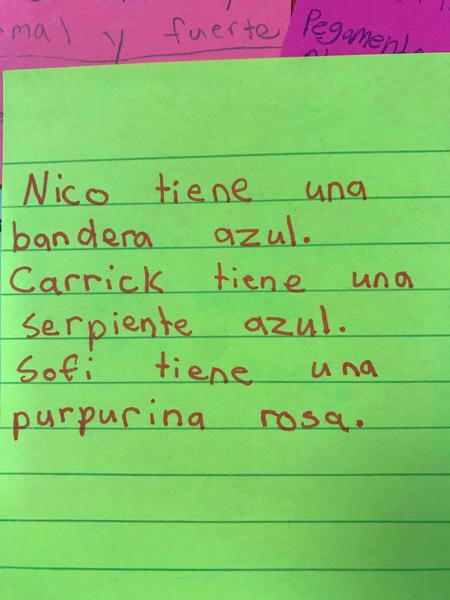 mal y fuerte
Pegament
Nico tiene una
bandera azul.
Carrick tiene una
serpiente azul.
Sofi tiene una
purpurina rosa.